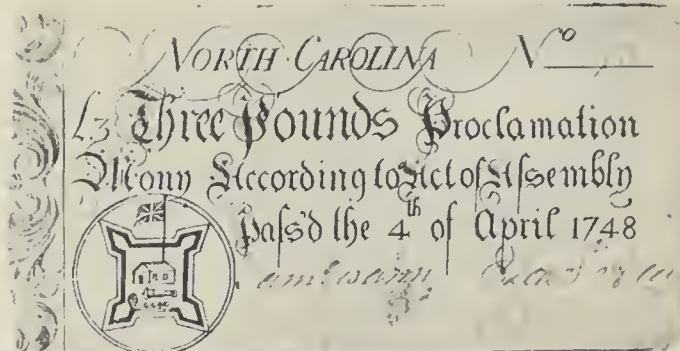 NORTH·CAROLINA Nº
£3 Three Pounds Proclamation
Mony According to Act of Assembly
pass'd the 4th of April 1748